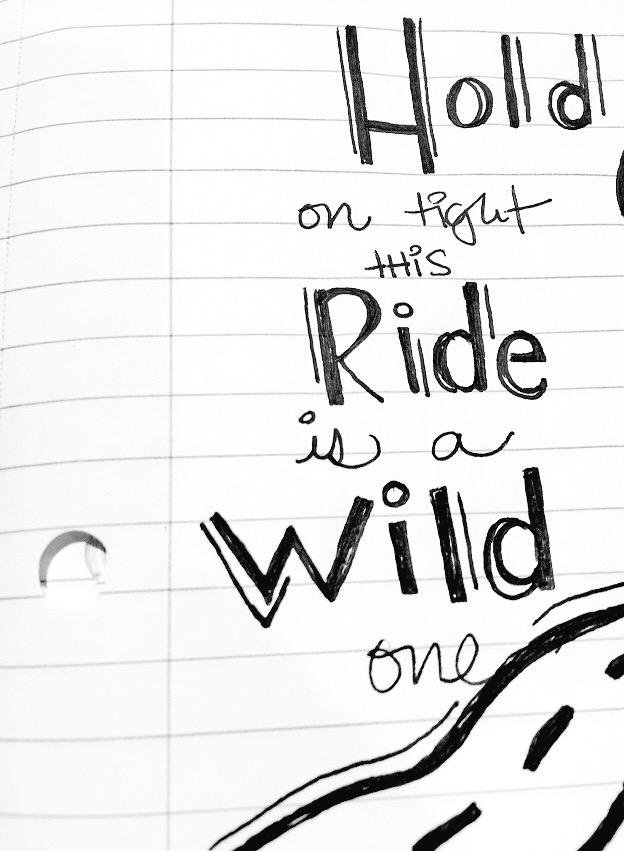 Hold
on tight
tHis
Ride
is a
Wild
one